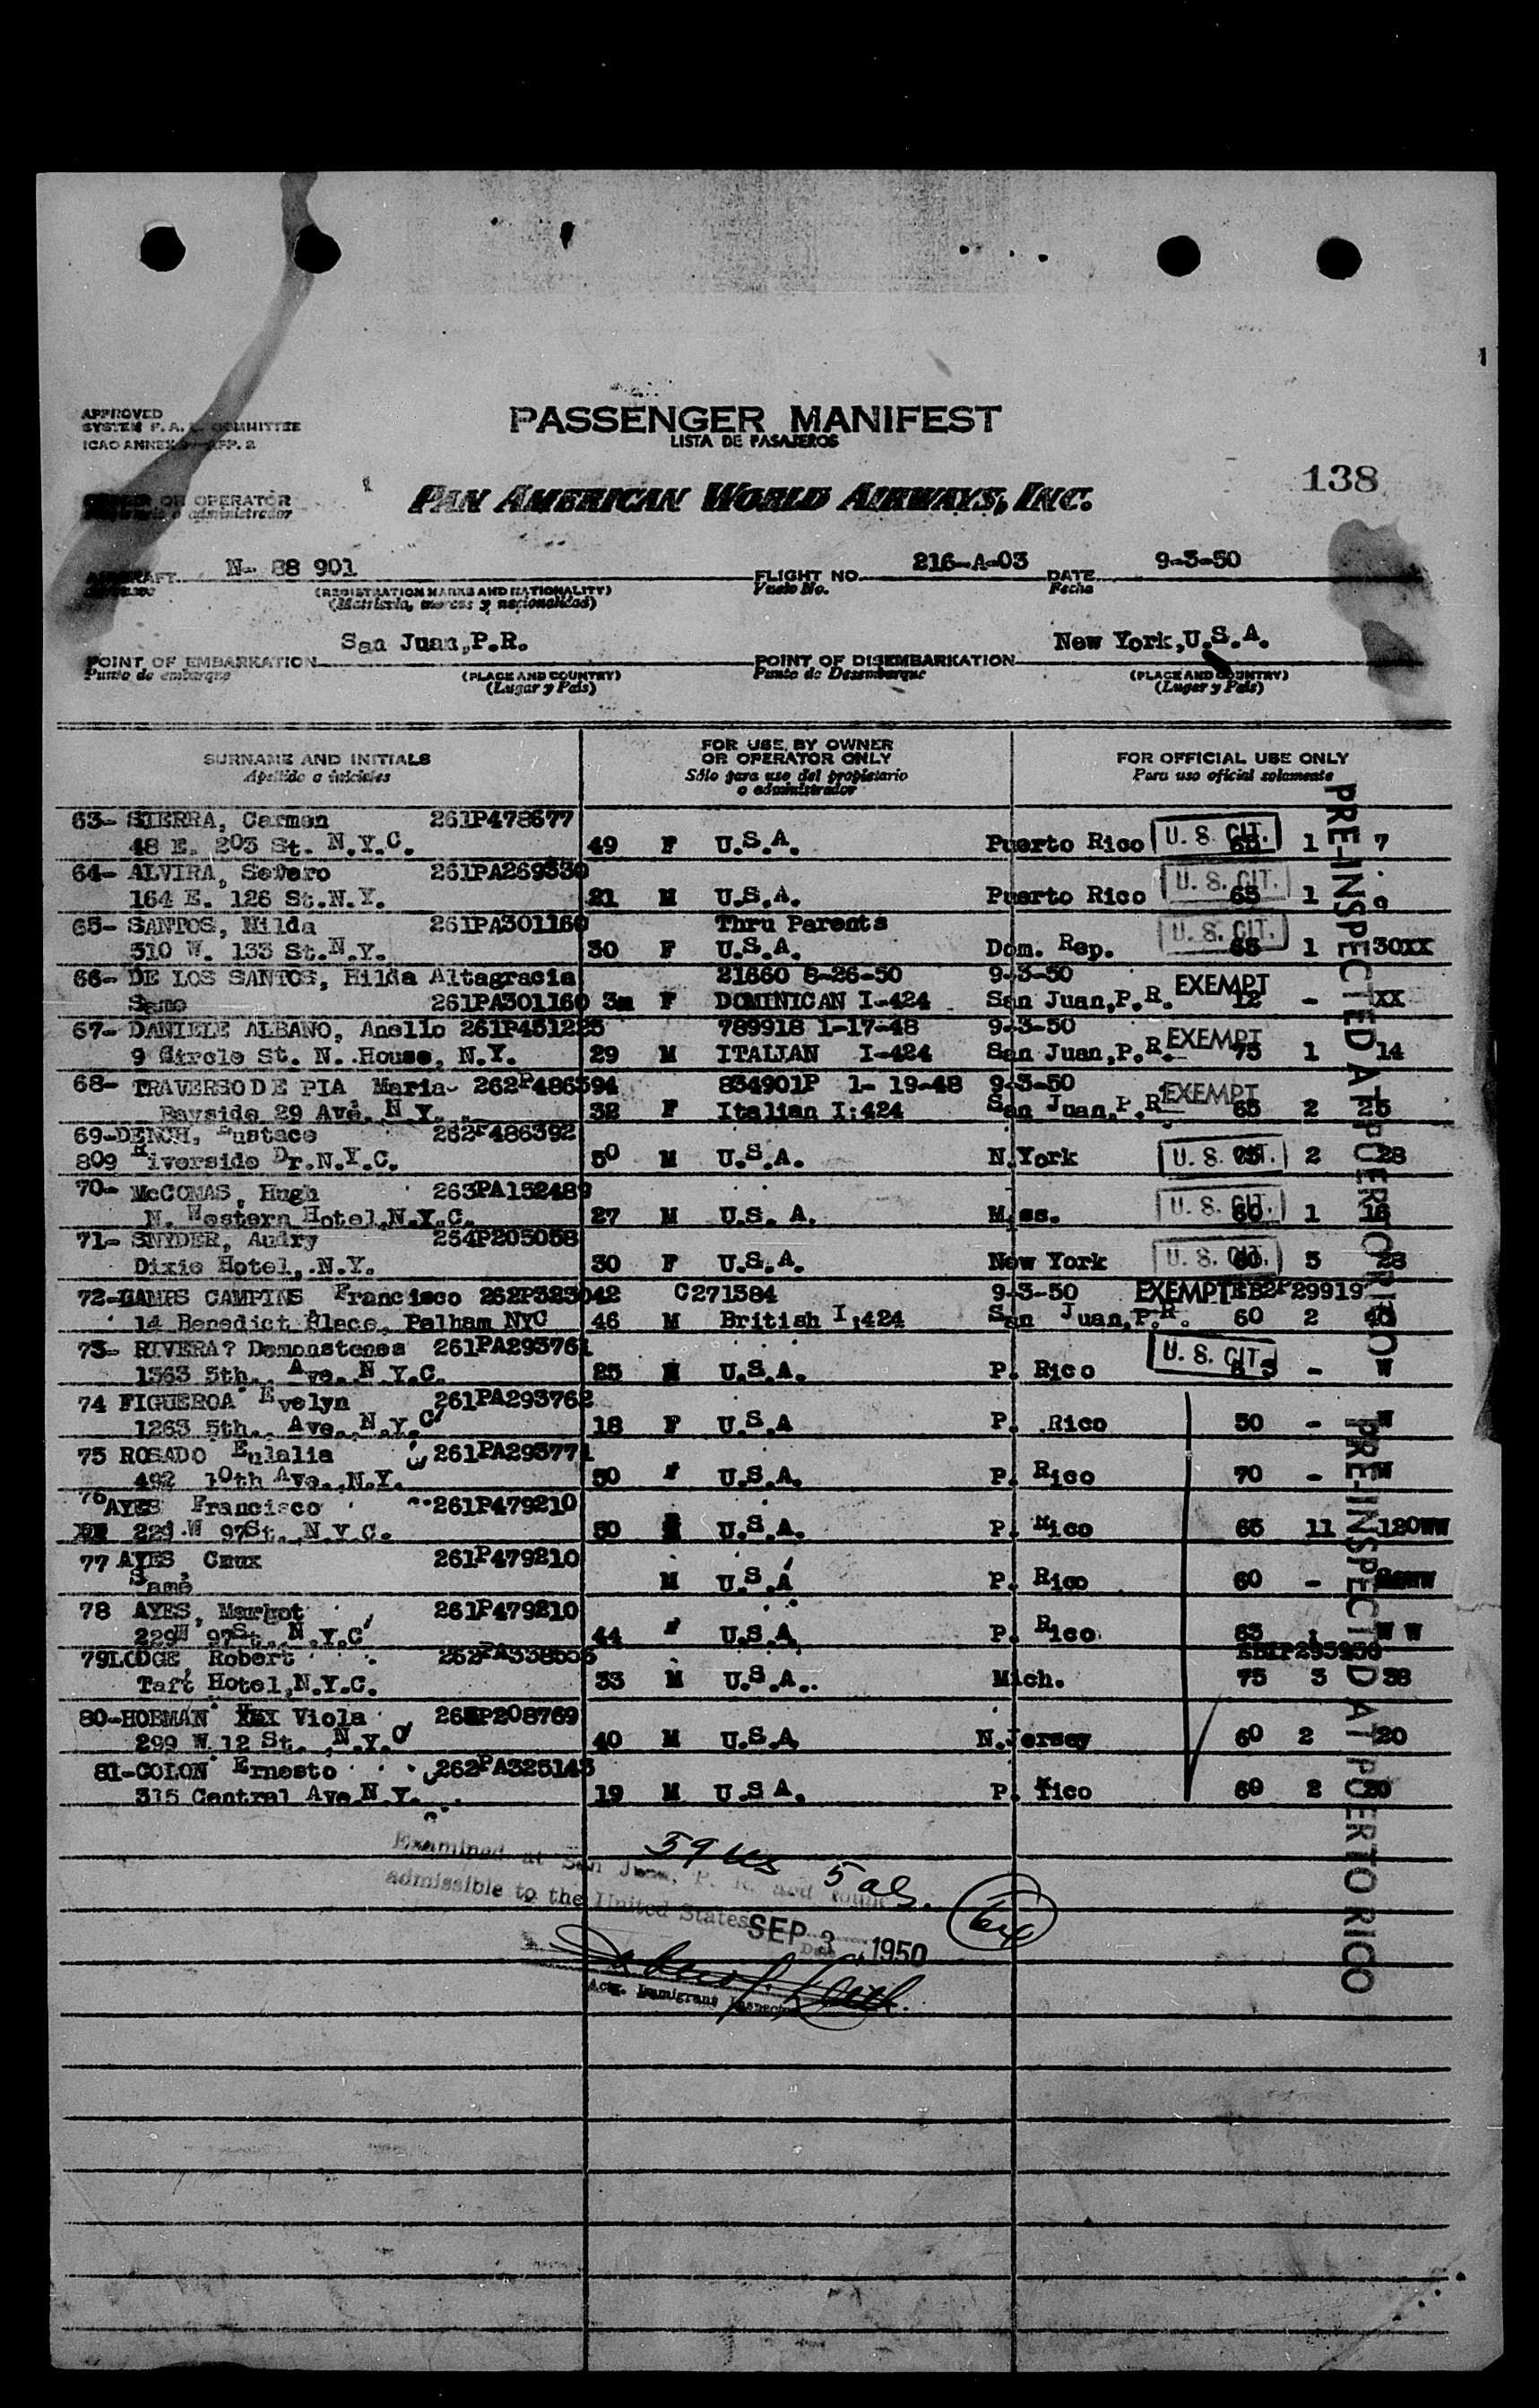 APPROVED
SYSTEM F. A. L. COMMITTEE
ICAO ANNEX 9—APP. 2
PASSENGER MANIFEST
LISTA DE PASAJEROS
138
OWNER OR OPERATOR
Propietario o administrador
PAN AMERICAN WORLD AIRWAYS, INC.
AIRCRAFT N- 88 901 FLIGHT NO. 216-A-03 DATE 9-3-50
(REGISTRATION MARKS AND NATIONALITY) Vuelo No. Fecha
(Matrícula, marcas y nacionalidad)
POINT OF EMBARKATION San Juan,P.R. POINT OF DISEMBARKATION New York,U.S.A.
Punto de embarque (PLACE AND COUNTRY) Punto de Desembarque (PLACE AND COUNTRY)
(Lugar y País) (Lugar y País)
SURNAME AND INITIALS FOR USE BY OWNER OR OPERATOR ONLY FOR OFFICIAL USE ONLY
Apellido e iniciales Sólo para uso del propietario o administrador Para uso oficial solamente
63- SIERRA, Carmen 261P478677
48 E. 203 St. N.Y.C. 49 F U.S.A. Puerto Rico U. S. CIT. 65 1 7
64- ALVIRA, Severo 261PA269330
164 E. 126 St.N.Y. 21 M U.S.A. Puerto Rico U. S. CIT. 65 1 9
65- SANTOS, Hilda 261PA301160 Thru Parents
510 W. 133 St.N.Y. 30 F U.S.A. Dom. Rep. U. S. CIT. 65 1 30XX
66- DE LOS SANTOS, Hilda Altagracia 21660 8-26-50 9-3-50
Same 261PA301160 3m F DOMINICAN I-424 San Juan,P.R. EXEMPT 12 - XX
67- DANIELE ALBANO, Anello 261P451225 789918 1-17-48 9-3-50
9 Circle St. N. .House, N.Y. 29 M ITALIAN I-424 San Juan,P.R. EXEMPT 75 1 14
68- TRAVERSO DE PIA Maria- 262P486394 834901P 1- 19-48 9-3-50
Bayside 29 Ave. N Y. 32 F Italian I:424 San Juan,P.R. EXEMPT 65 2 25
69-DENCH, Eustace 262P486392
809 Riverside Dr.N.Y.C. 50 M U.S.A. N.York U. S. CIT. 75 2 28
70- McCOMAS, Hugh 263PA152489
N. Western Hotel,N.Y.C. 27 M U.S. A. U. S. CIT. 60 1 16
71- SNYDER, Audry 264P205058
Dixie Hotel,.N.Y. 30 F U.S.A. New York U. S. CIT. 60 3 28
72- CAMPINS Francisco 262P323042 C271384 9-3-50 EXEMPT EB2P29919
14 Benedict Place, Palham NYC 46 M British I:424 San Juan,P.R. 60 2 40
73- RIVERA? Demonstenes 261PA293761
1363 5th., Ave. N.Y.C. 25 M U.S.A. P. Rico U. S. CIT. - W
74 FIGUEROA Evelyn 261PA293762
1263 5th., Ave., N.Y.C 18 F U.S.A P. .Rico 50 - W
75 ROSADO Eulalia 261PA293771
492 10th Ave.,N.Y. 50 " U.S.A. P. Rico 70 - W
76 AYES Francisco 261P479210
229 W 97St., N.Y.C. 50 U.S.A. P. Rico 65 11 120WW
77 AYES, Cruz 261P479210
Same M U.S.A P. Rico 60 -
78 AYES, Margot 261P479210
229W 97St., N.Y.C 44 " U.S.A. P. Rico 63 W W
79LODGE, Robert
Taft Hotel,N.Y.C. 33 M U.S.A.. Mich. 75 3 38
80-HOBMAN Viola
299 W.12 St., N.Y.C 40 M U.S.A. N.Jersey 60 2 20
81-COLON Ernesto 262PA325143
315 Central Ave.N.Y. 19 M U.S.A. P. Rico 60 2 20
PRE-INSPECTED AT PUERTO RICO
PRE-INSPECTED AT PUERTO RICO
59 US 5 als. 64
Examined at San Juan, P. R. and found
admissible to the United States
SEP 3 1950
Date
Actg. Immigrant Inspector